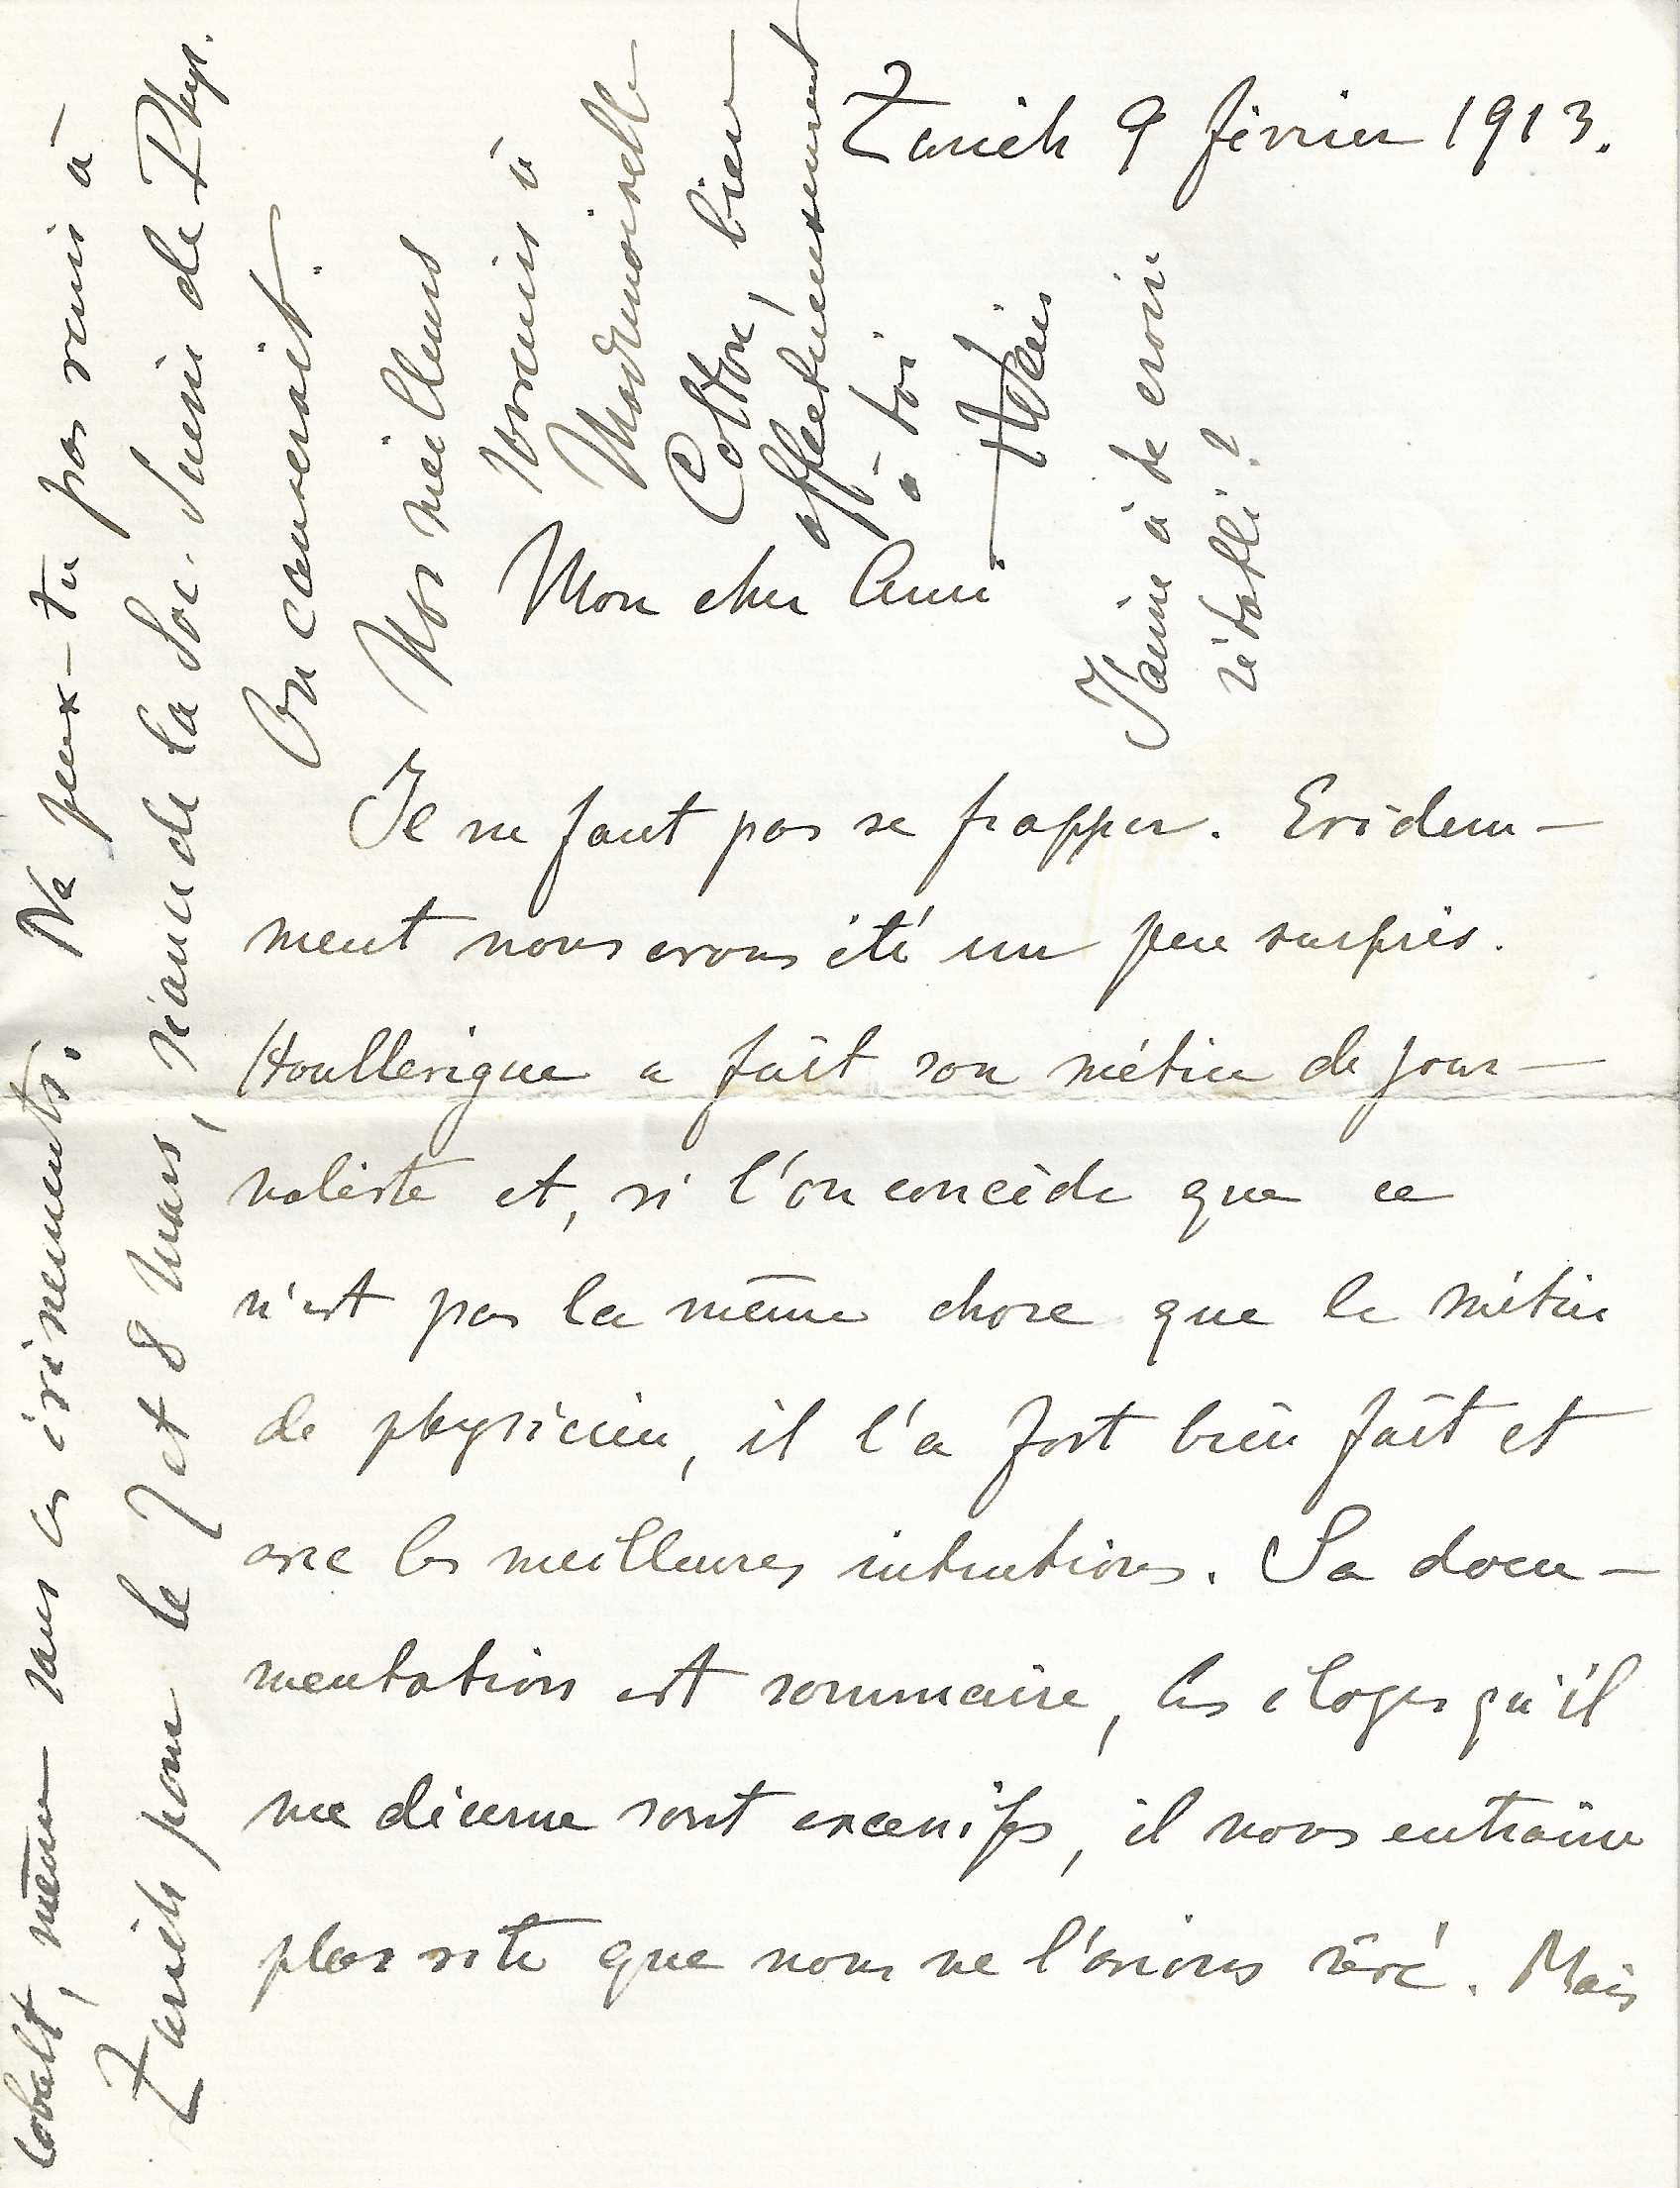 Zurich 9 février 1913.
Mon cher Ami
Il ne faut pas se frapper. Evidem-
ment nous avons été un peu surpris.
Houllevigue a fait son métier de jour-
naliste et, si l'on concède que ce
n'est pas la même chose que le métier
de physicien, il l'a fort bien fait et
avec les meilleures intentions. Sa docu-
mentation est sommaire, les éloges qu'il
me décerne sont excessifs, il nous entraine
plus vite que nous ne l'avions rêvé. Mais
cobalt, même sans ces évènements. Ne peux-tu pas venir à
Zurich pour le 7 et 8 Mars, réunion de la Soc. Suisse de Phys.
On causerait.
Nos meilleurs
souvenirs à
Mademoiselle
Cotton, bien
affectueusement
à toi
J'aime à te croire
rétabli?